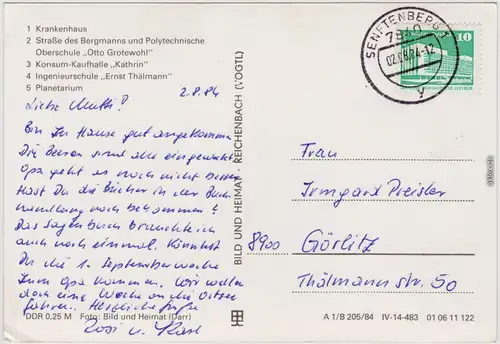 1 Krankenhaus
2 Straße des Bergmanns und Polytechnische
Oberschule „Otto Grotewohl"
3 Konsum-Kaufhalle „Kathrin"
4 Ingenieurschule „Ernst Thälmann"
5 Planetarium
2.8.84
Liebe Mutti!
Bin zu Hause gut angekommen.
Die Beeren sind alle eingeweckt
Opa geht es noch nicht besser.
Hast Du die Bücher in der Buch-
handlung noch bekommen?
Das Sagenbuch brauche ich
auch noch einmal. Könntest
Du die 1. Septemberwoche
zum Opa kommen. Wir wollen
doch eine Woche an die Ostsee
fahren. Herzliche Grüße
Rosi u. Karl
DDR 0,25 M Foto: Bild und Heimat (Darr)
BILD UND HEIMAT · REICHENBACH (VOGTL)
SENFTENBERG 1
7840
02.08.84-12
y
10
Frau
Irmgard Preisler
8900 Görlitz
Thälmannstr. 50
A 1/B 205/84 IV-14-483 01 06 11 122